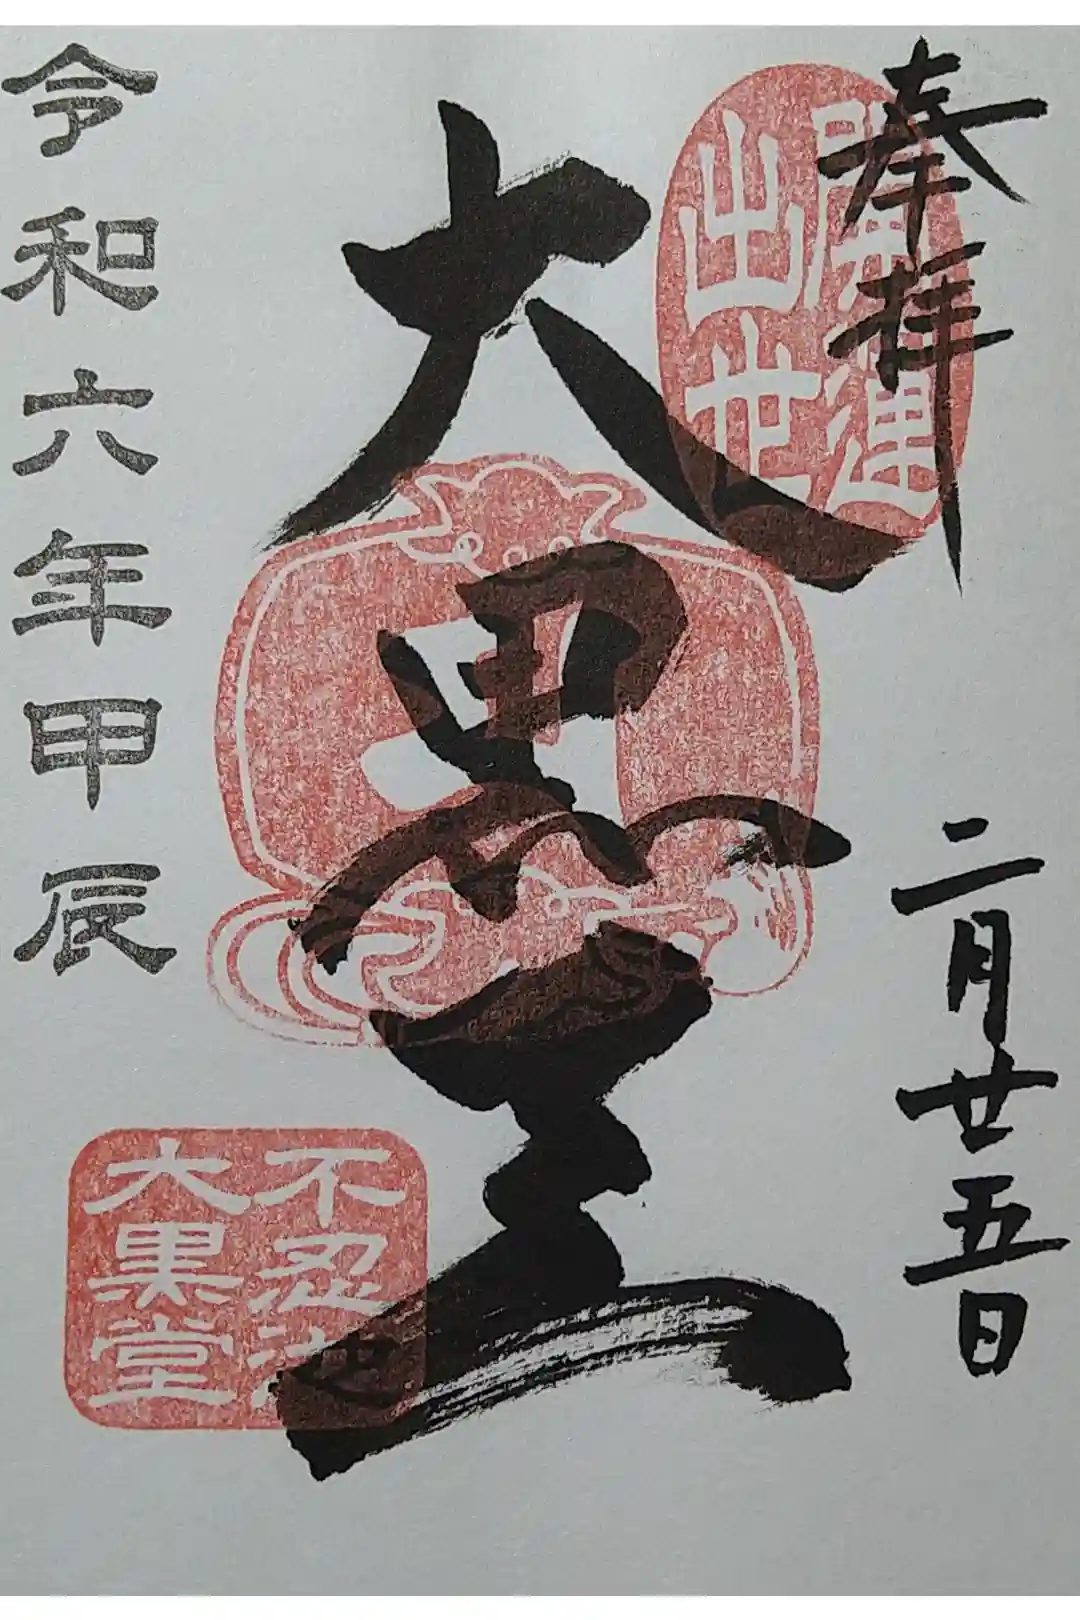 奉拝
開運
出世
二月廿五日
大黒天
不忍池
大黒堂
令和六年甲辰